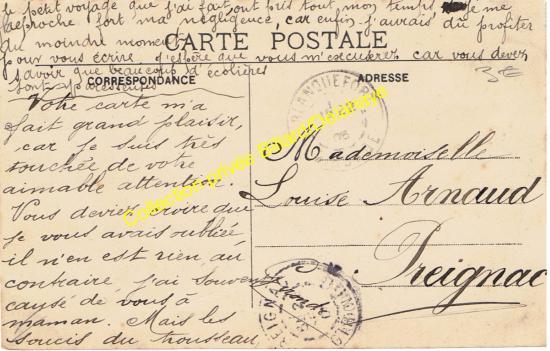 le petit voyage que j'ai fait ont pris tout mon temps je me
reproche fort ma négligence, car enfin j'aurais dû profiter
du moindre moment
CARTE POSTALE
pour vous écrire j'espère que vous m'excuserez car vous devez
savoir que beaucoup d'écolières
sont paresseuses
CORRESPONDANCE
ADRESSE
Votre carte m'a
fait grand plaisir,
car je suis très
touchée de votre
aimable attention.
Vous deviez croire que
je vous avais oubliée
il n'en est rien, au
contraire, j'ai souvent
causé de vous à
maman. Mais les
soucis du trousseau
BLANQUEFORT
Mademoiselle
Louise Arnaud
Preignac
Gironde
PREIGNAC
Collection privée E.Baril-Delahaye